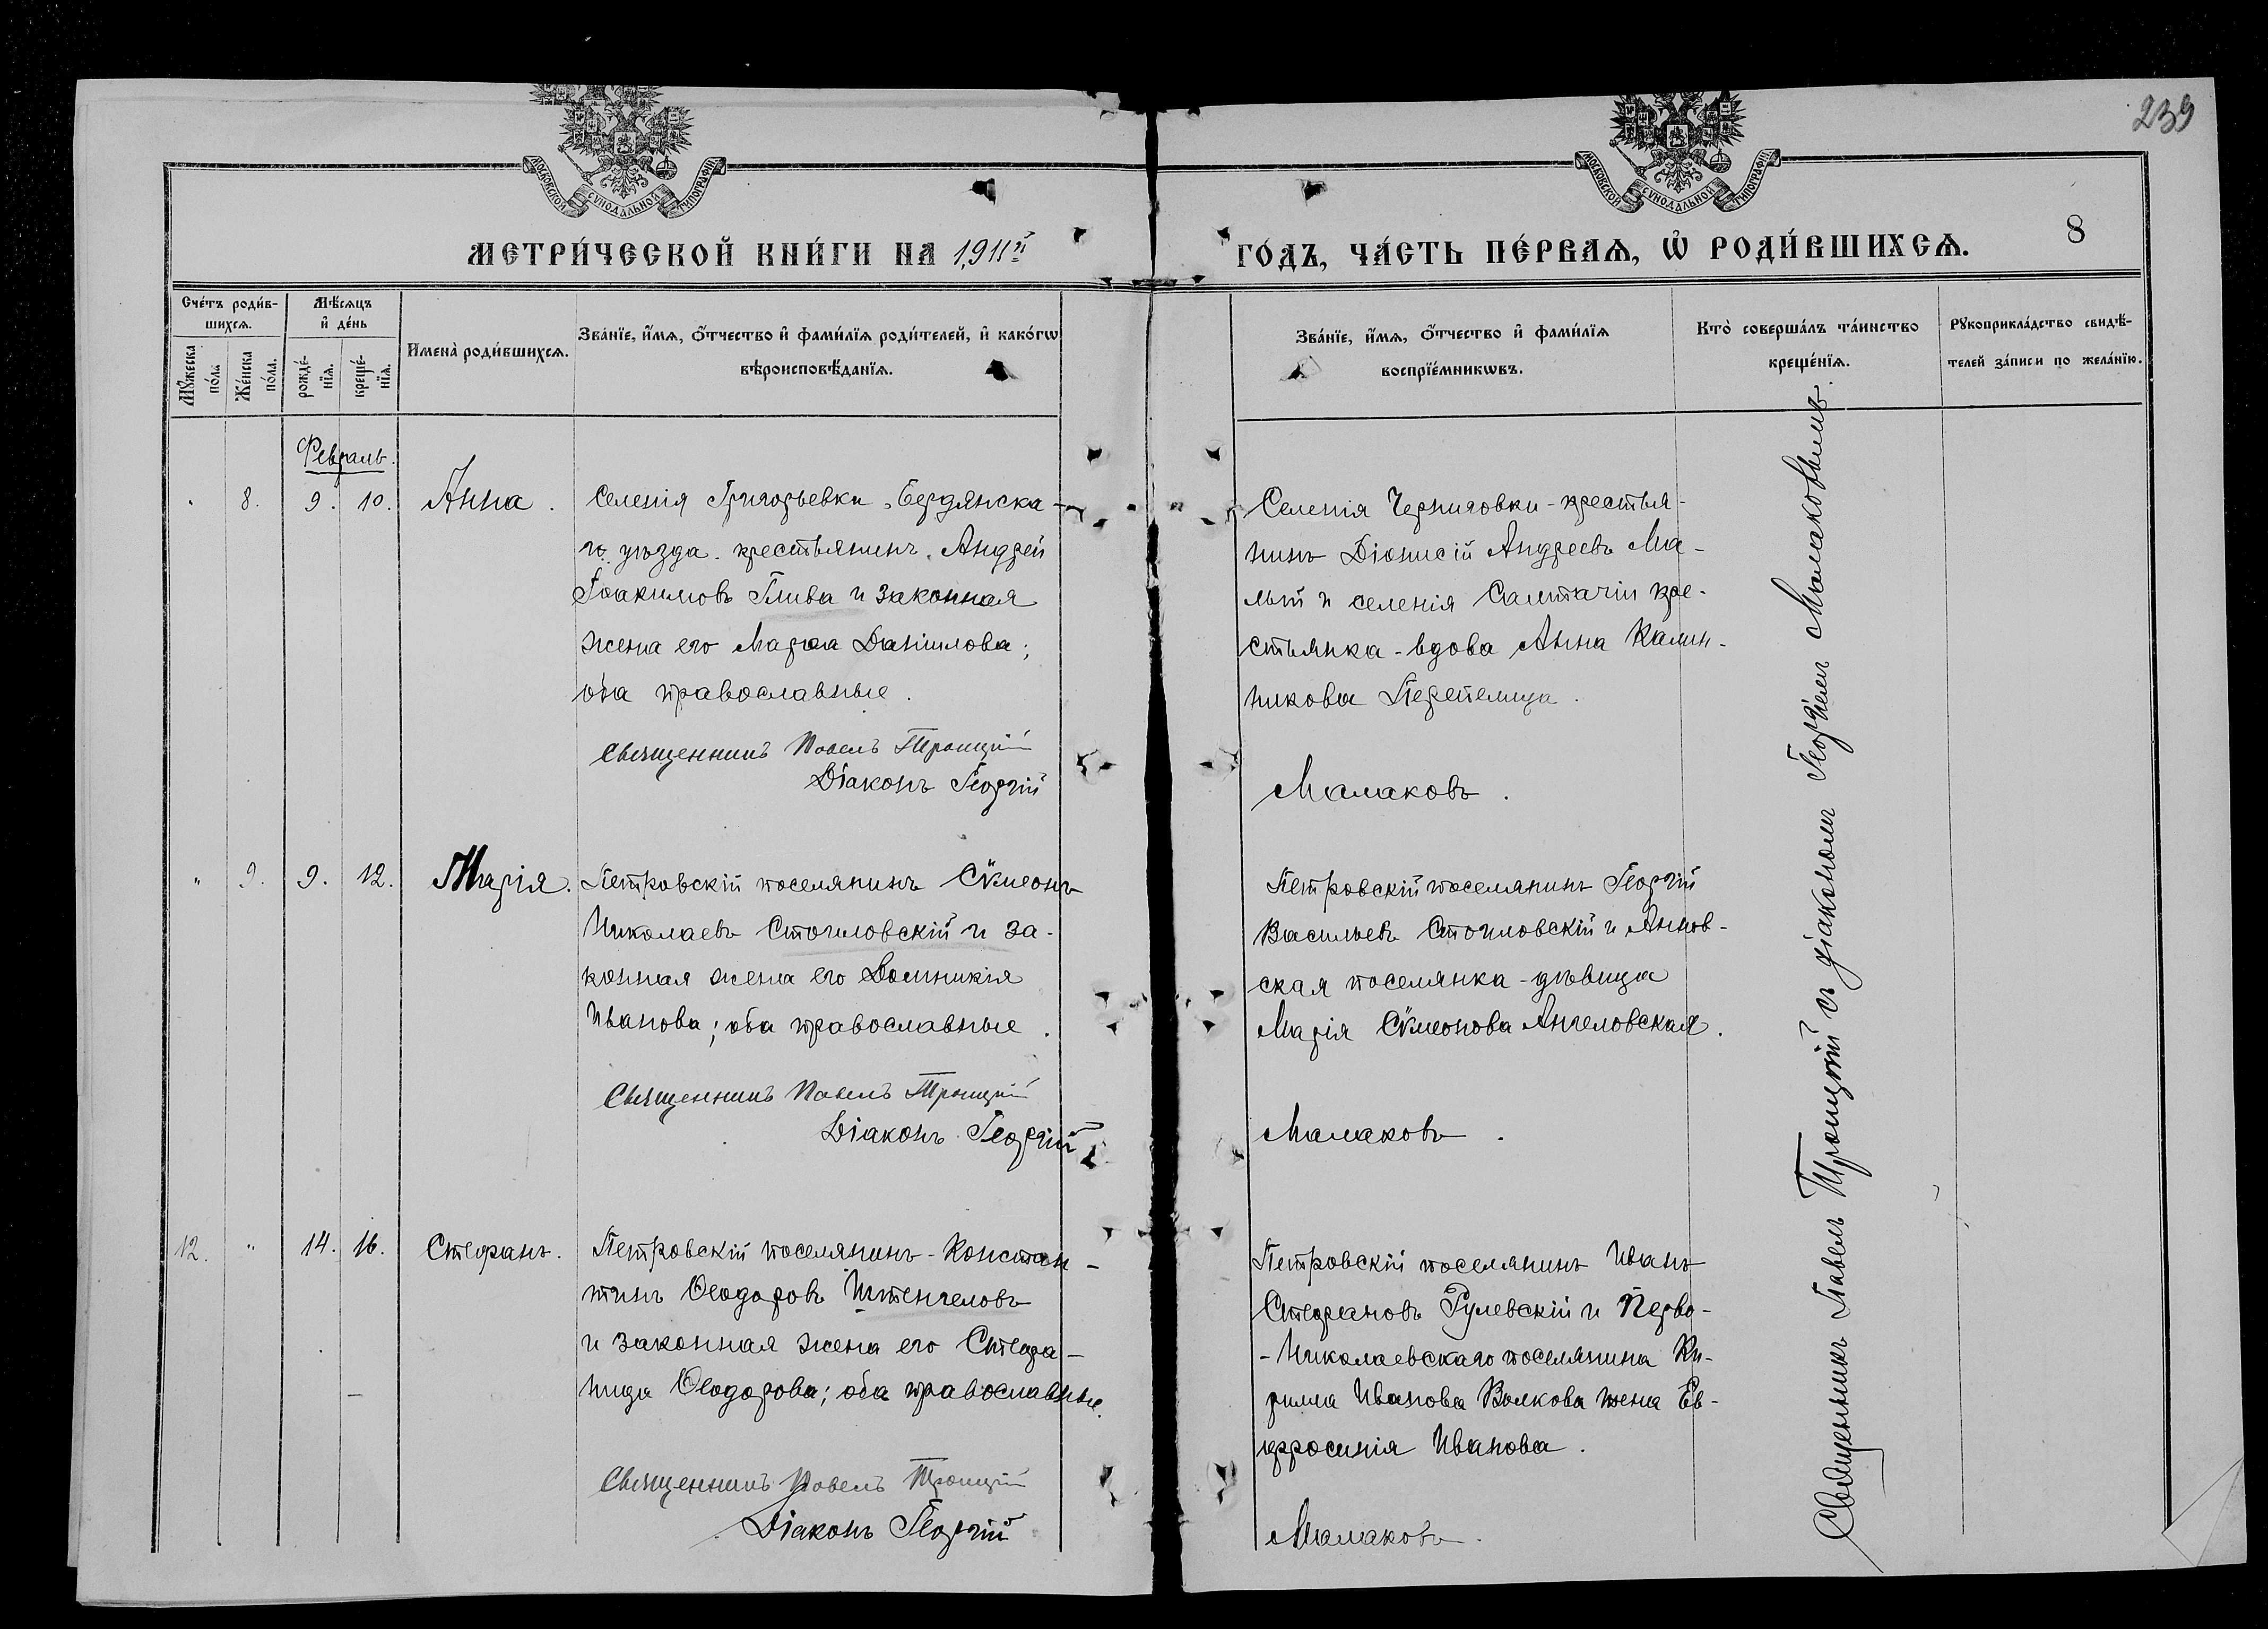 239
МОСКОВСКОЙ СУНОДАЛЬНОЙ ТИПОГРАФІИ
МОСКОВСКОЙ СУНОДАЛЬНОЙ ТИПОГРАФІИ
МЕТРИ́ЧЕСКОЙ КНИ́ГИ НА 1911й
ГО́ДЪ, ЧА́СТЬ ПЕ́РВАѦ, Ѡ҆ РОДИ́ВШИХСѦ.
8
Сче́тъ роди́в-
шихсѧ.
Мѣ́сѧцъ
и҆ де́нь
Мꙋ́жеска
по́ла
Же́нска
по́ла.
рожде́-
нїѧ.
креще́-
нїѧ.
Имена̀ роди́вшихсѧ.
Зва́нїе, и҆́мѧ, ѻ҆́тчество и҆ фами́лїѧ роди́телей, и҆ како́гѡ
вѣроисповѣ́данїѧ.
Зва́нїе, и҆́мѧ, ѻ҆́тчество и҆ фами́лїѧ
воспрїе́мникѡвъ.
Кто̀ соверша́лъ та́инство
креще́нїѧ.
Рꙋкоприкла́дство свидѣ́-
телей за́писи по жела́нїю.
Февраль.
" 8. 9. 10. Анна.
Селенія Григорьевки, Бердянска-
го уѣзда крестьянинъ Андрей
Іоакимовъ Глива и законная
жена его Марѳа Даніилова;
оба православные.
Священникъ Павелъ Троицкій
Діаконъ Георгій
Селенія Черниговки - крестья-
нинъ Діонисій Андреевъ Ма-
лый и селенія Салтачіи кре-
стьянка - вдова Анна Калин-
никова Перепелица.
Малаковъ.
" 9. 9. 12. Марія.
Петровскій поселянинъ Сѵмеонъ
Николаевъ Стоиловскій и за-
конная жена его Домникія
Иванова; оба православные.
Священникъ Павелъ Троицкій
Діаконъ Георгій
Петровскій поселянинъ Георгій
Васильевъ Стоиловскій и Аннов-
ская поселянка - дѣвица
Марія Сѵмеонова Ангеловская.
Малаковъ.
12. " 14. 16. Стефанъ.
Петровскій поселянинъ - Констан-
тинъ Ѳеодоровъ Штенгеловъ
и законная жена его Стефа-
нида Ѳеодорова; оба православные.
Священникъ Павелъ Троицкій
Діаконъ Георгій
Петровскій поселянинъ Иванъ
Стефановъ Гулевскій и Перво-
-Николаевскаго поселянина Ки-
рилла Иванова Волкова жена Ев-
фросинія Иванова.
Малаковъ.
Священникъ Павелъ Троицкій съ діакономъ Георгіемъ Малаковымъ.